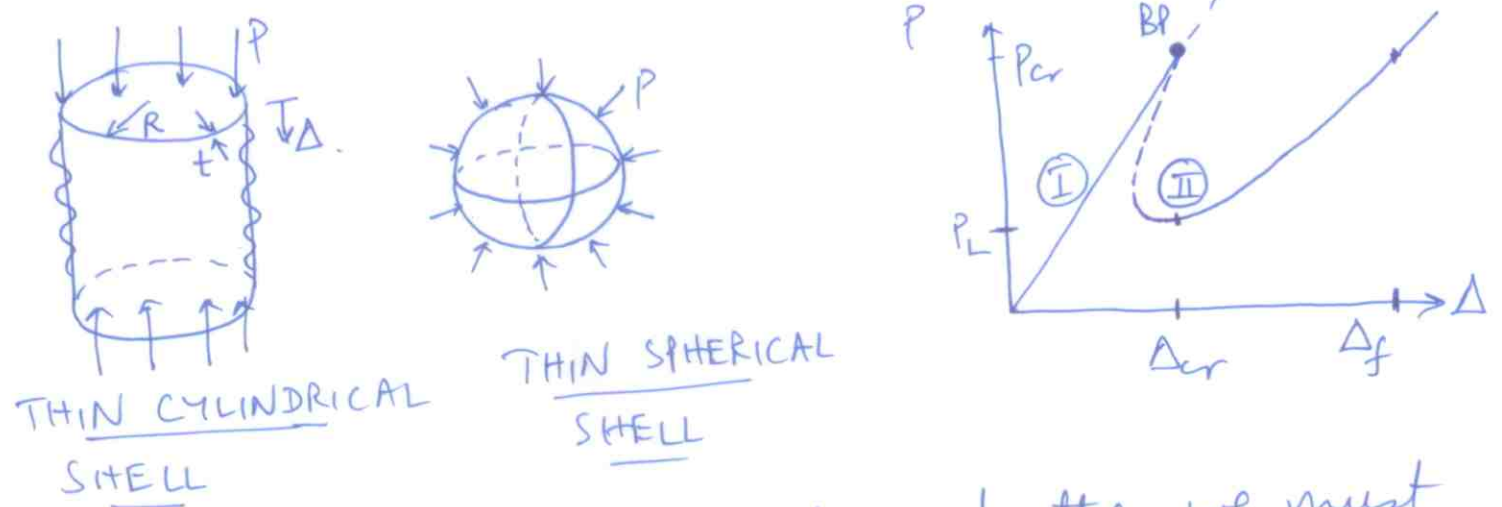 P
R
t
Δ.
THIN CYLINDRICAL
SHELL
P
THIN SPHERICAL
SHELL
P
BP
Pcr
I
II
PL
Δ
Δcr
Δf
must